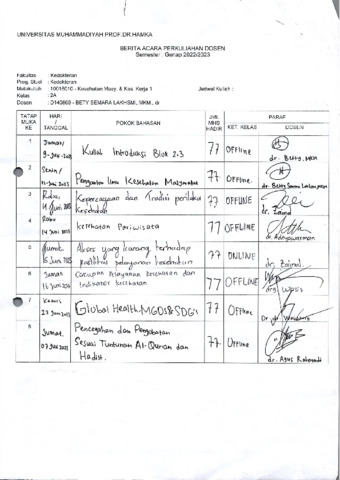 UNIVERSITAS MUHAMMADIYAH PROF.DR.HAMKA
BERITA ACARA PERKULIAHAN DOSEN
Semester : Genap 2022/2023
Fakultas : Kedokteran
Prog. Studi : Kedokteran
Matakuliah : 10015010 - Kesehatan Masy. & Kes. Kerja 1 Jadwal Kuliah :
Kelas : 2A
Dosen : D140869 - BETY SEMARA LAKHSMI, MKM., dr
TATAP MUKA KE HARI / TANGGAL POKOK BAHASAN JML MHS HADIR KET. KELAS PARAF DOSEN
1 Jumat/ Kuliah Introduksi Blok 2.3 77 OFFline dr. Bety, MKM
2 Senin/ Pengantar Ilmu Kesehatan Masyarakat 77 OFFline
3 Rabu, Kepercayaan dan Tradisi perilaku Kesehatan 77 OFFLINE dr. Zainal
4 Rabu 14 Juni kesehatan Pariwisata 77 OFFLINE
5 Jumat. 16 Juni Akses yang kurang terhadap pelayanan kesehatan 77 ONLINE dr. Zainal
6 Jumat Cakupan pelayanan kesehatan dan Indikator kesehatan 77 OFFLINE
7 Kamis Global Health, MGDs & SDGs 77 OFFline
8 Jumat. Pencegahan dan Pengobatan Sesuai Tuntunan Al-Qur'an dan Hadist. 77 Offline dr. Agus